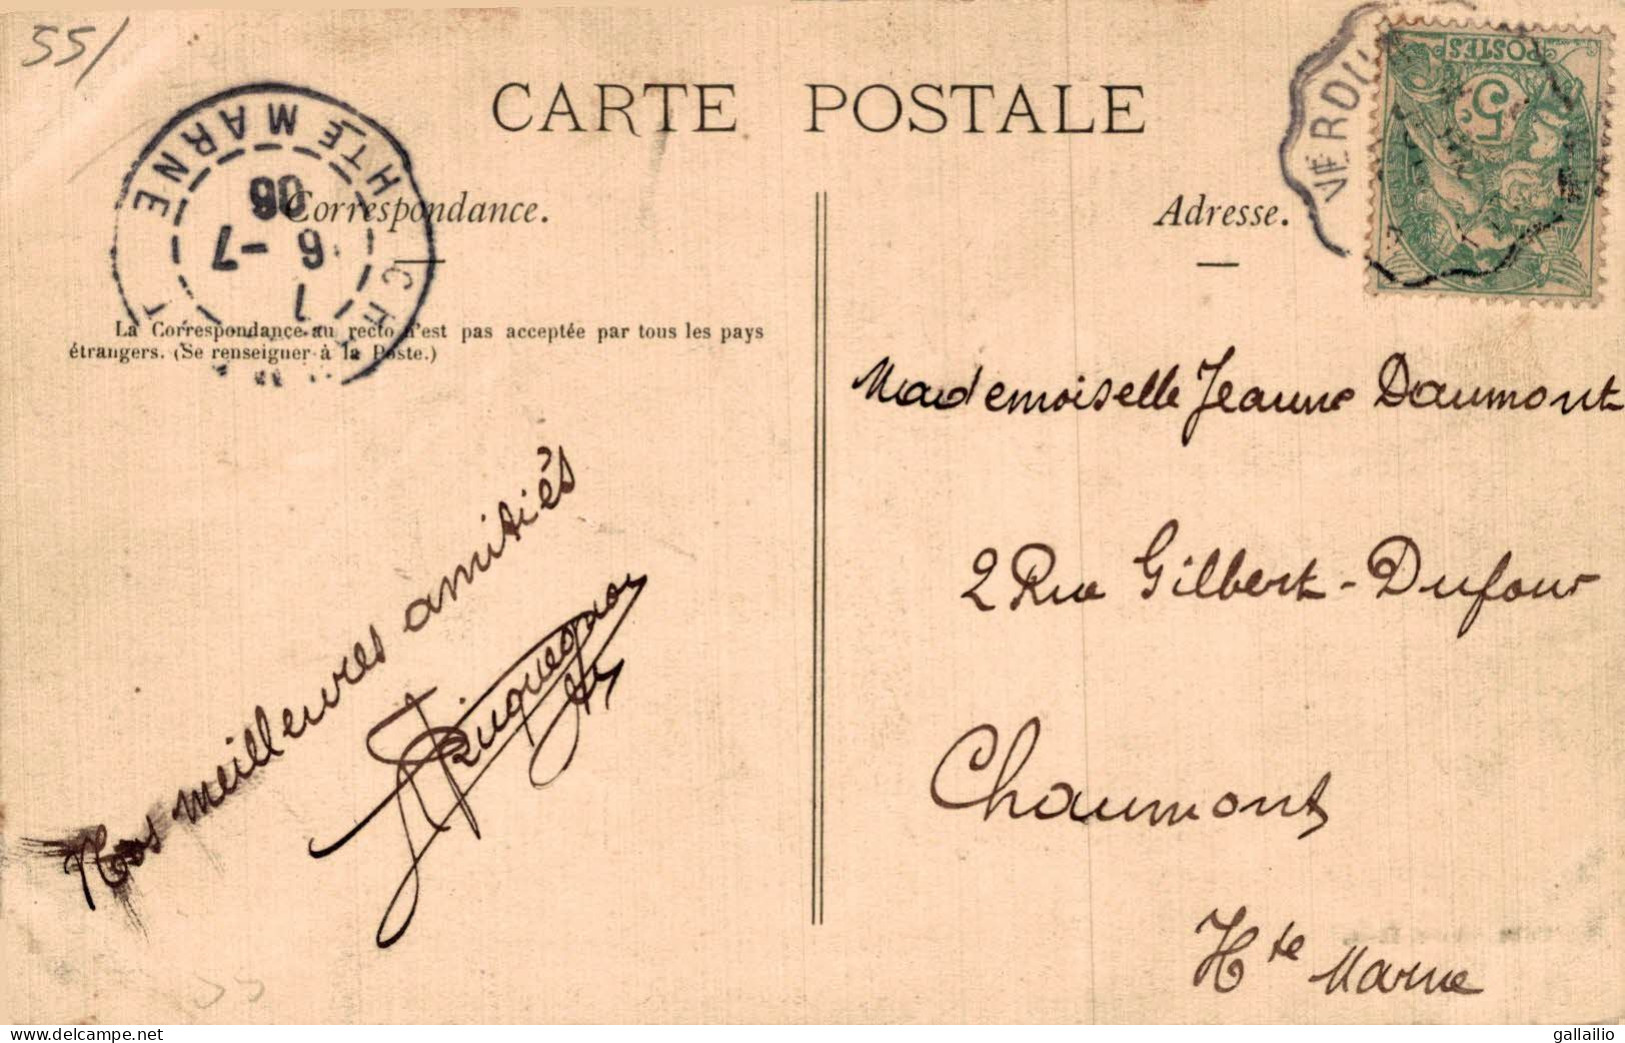 55/
CARTE POSTALE
Correspondance.
Adresse.
HTE MARNE
6-7
06
VERDU
POSTES
5
La Correspondance au recto n'est pas acceptée par tous les pays
étrangers. (Se renseigner à la Poste.)
Mademoiselle Jeanne Daumont
2 Rue Gilbert-Dufour
Chaumont
Hte Marne
Nos meilleures amitiés
gallailio